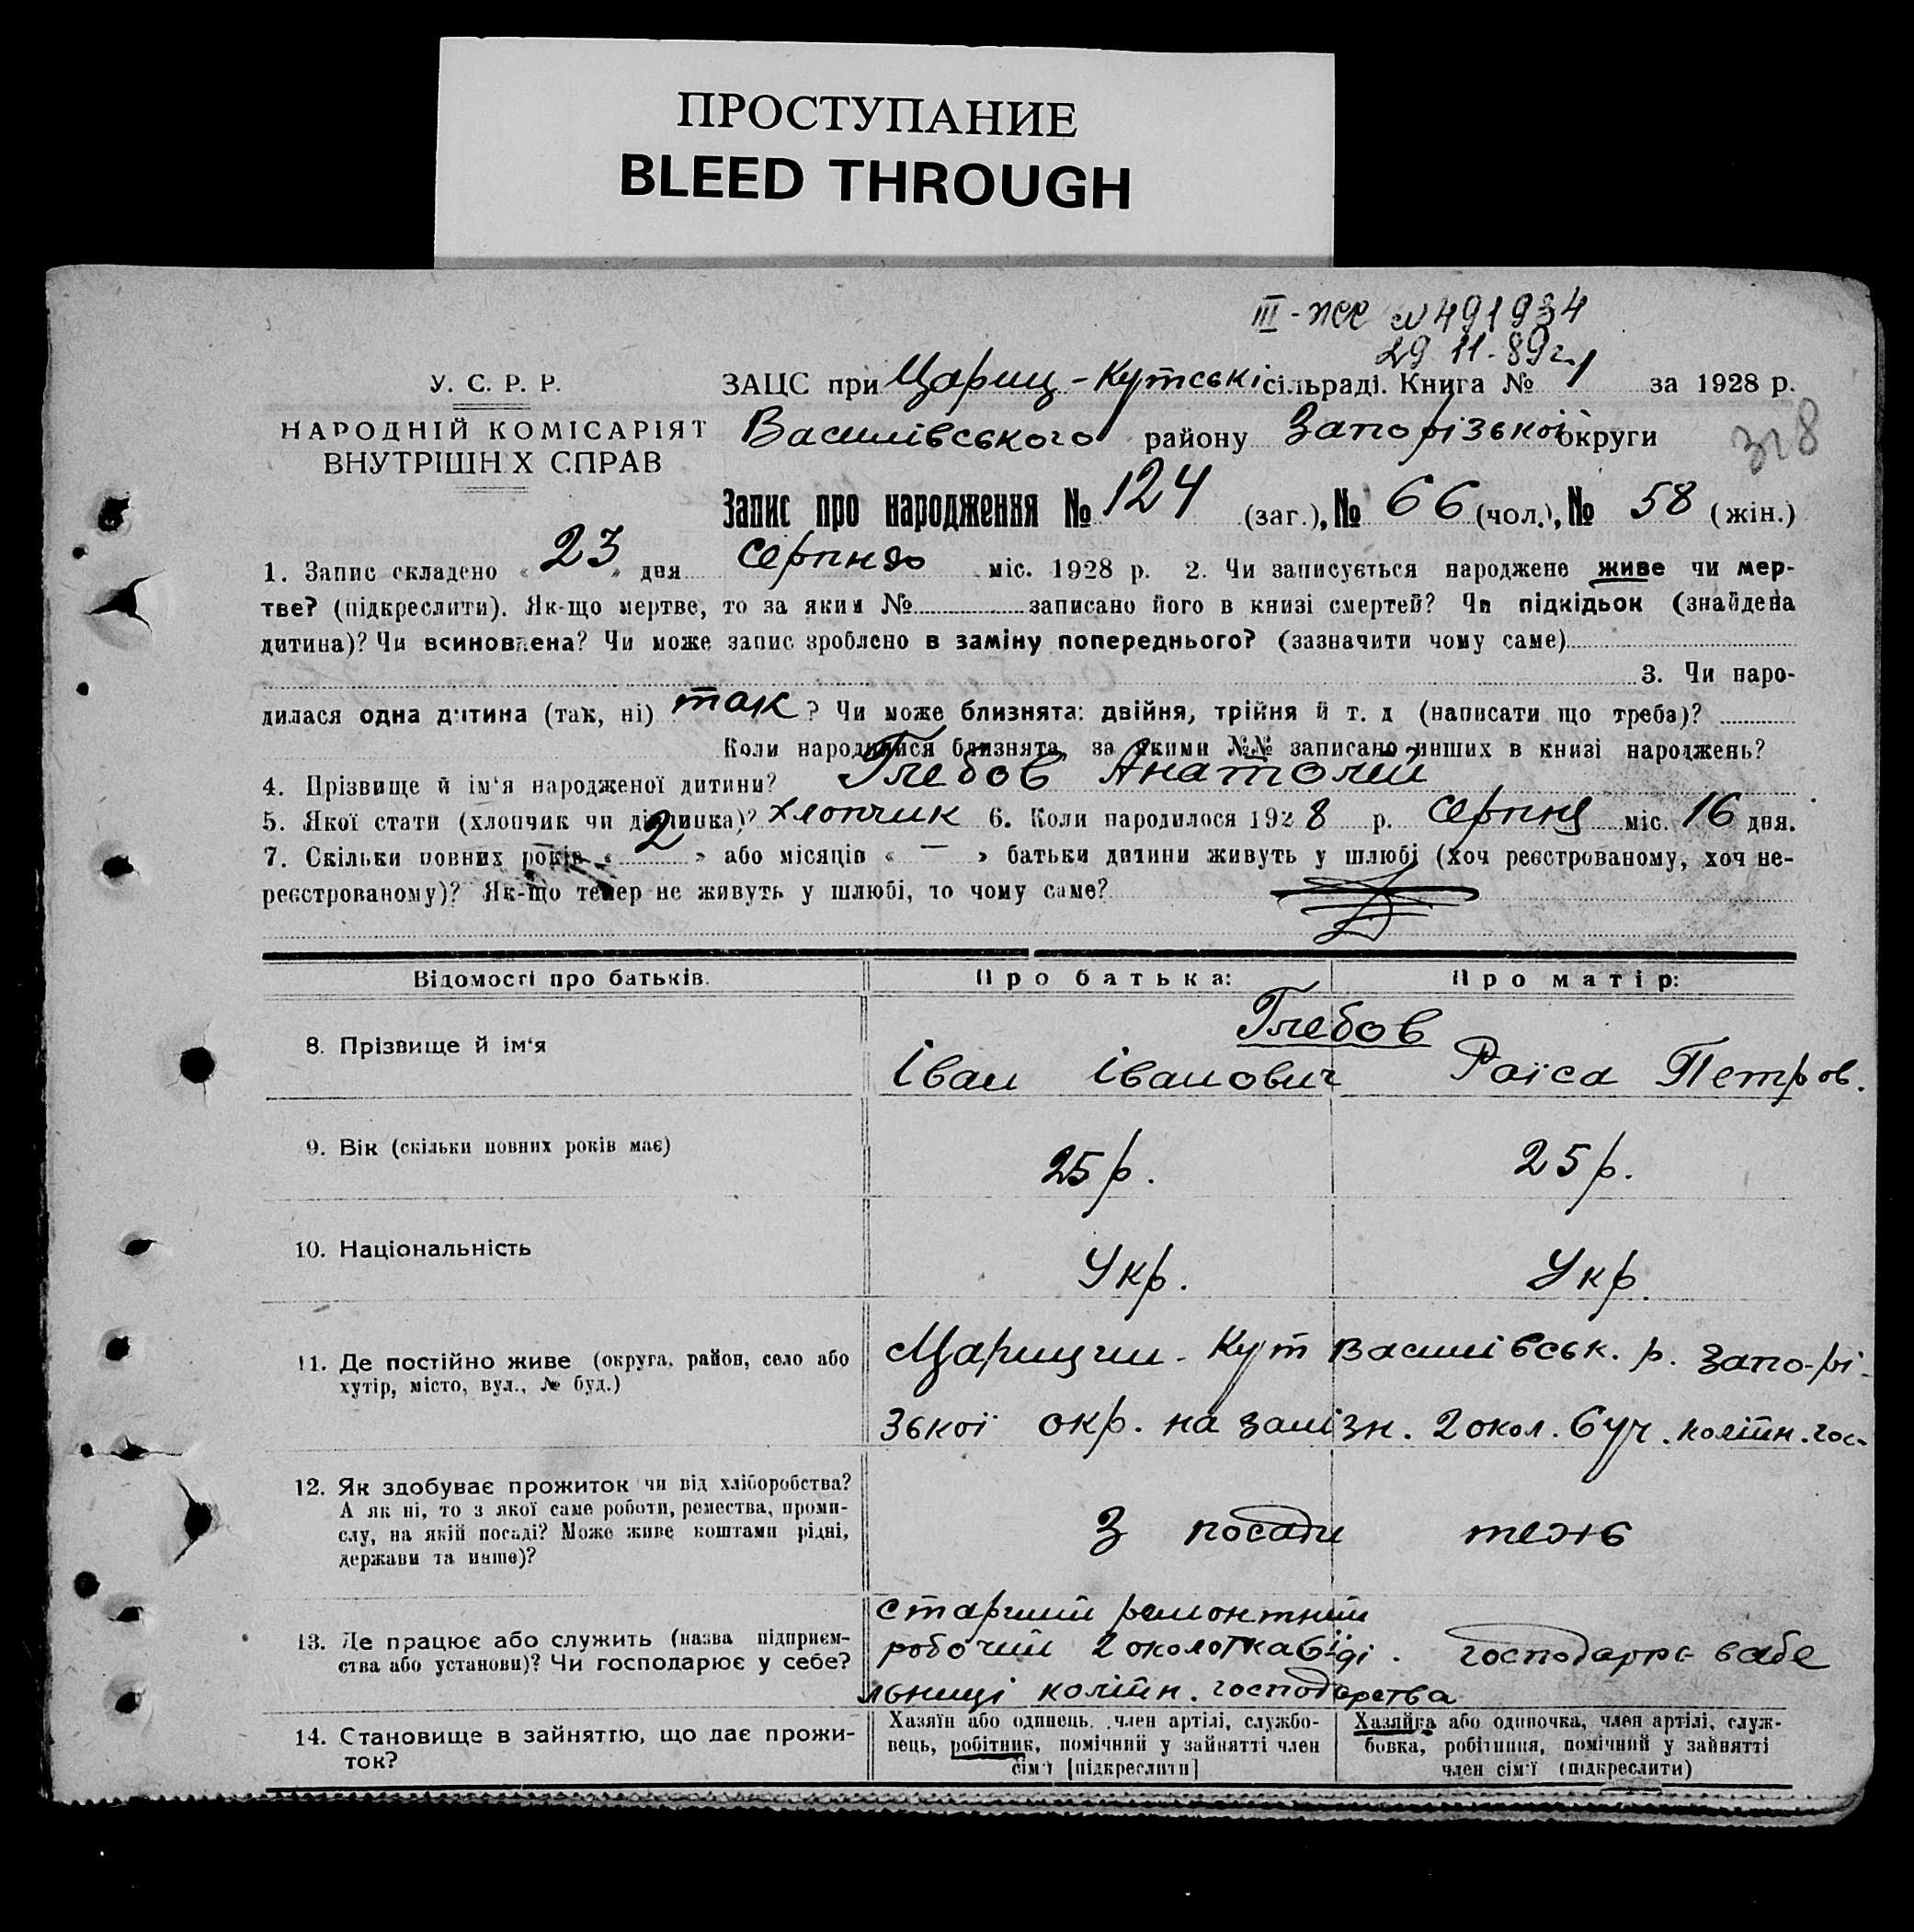 ПРОСТУПАНИЕ
BLEED THROUGH
III - ЖС № 491934
29 11-89г.
У. С. Р. Р.
ЗАЦС при Цариц-Кутські сільраді. Книга № 1 за 1928 р.
НАРОДНІЙ КОМІСАРІЯТ
ВНУТРІШН Х СПРАВ
Василівського району Запорізької округи
318
Запис про народження № 124 (заг.), № 66 (чол.), № 58 (жін.)
1. Запис складено « 23 » дня серпня міс. 1928 р. 2. Чи записується народжене живе чи мер-
тве? (підкреслити). Як-що мертве, то за яким № записано його в книзі смертей? Чи підкідьок (знайдена
дитина)? Чи всиновлена? Чи може запис зроблено в заміну попереднього? (зазначити чому саме)
3. Чи наро-
дилася одна дитина (так, ні) так ? Чи може близнята: двійня, трійня й т. д (написати що треба)?
Коли народилися близнята, за якими №№ записано инших в книзі народжень?
4. Прізвище й ім'я народженої дитини? Глебов Анатолій
5. Якої стати (хлопчик чи дівчинка)? хлопчик 6. Коли народилося 1928 р. серпня міс. 16 дня.
7. Скільки повних років « 2 » або місяців « — » батьки дитини живуть у шлюбі (хоч реєстрованому, хоч не-
реєстрованому)? Як-що тепер не живуть у шлюбі, то чому саме?
Відомості про батьків. Про батька: Про матір:
Глебов
8. Прізвище й ім'я Іван Іванович Раїса Петров.
9. Вік (скільки повних років має) 25 р. 25 р.
10. Національність Укр. Укр.
11. Де постійно живе (округа, район, село або хутір, місто, вул., № буд.) Царицин-Кут Василівськ. р. Запо-рі-
зької окр. на залізн. 2 окол. 6 уч. колійн. гос-
12. Як здобуває прожиток чи від хліборобства?
А як ні, то з якої саме роботи, ремества, проми-
слу, на якій посаді? Може живе коштами рідні,
держави та инше)?
З посади тежь
старший ремонтний
13. Де працює або служить (назва підприєм-
ства або установи)? Чи господарює у себе?
робочий 2 околотка 6 ді. господарює в себе
льниці колійн. господарства
14. Становище в зайняттю, що дає прожи-
ток?
Хазяїн або одинець, член артілі, службо-
вець, робітник, помічний у зайнятті член
сім'ї [підкреслити]
Хазяйка або одиночка, член артілі, служ-
бовка, робітниця, помічний у зайнятті
член сім'ї (підкреслити)